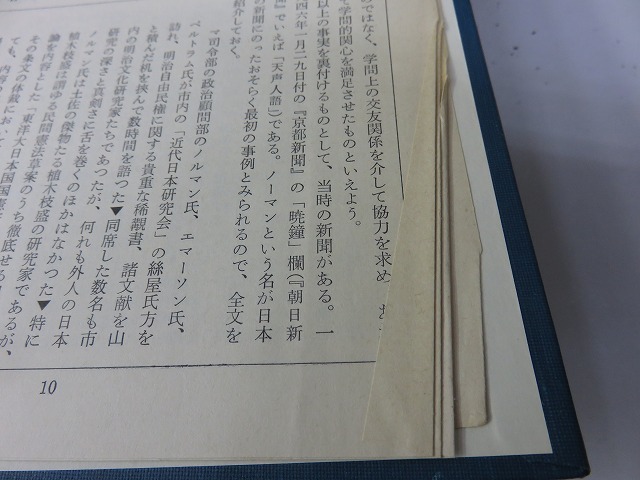 のではなく、学問上の交友関係を介して協力を求め
て学問的関心を満足させたものといえよう。
以上の事実を裏付けるものとして、当時の新聞がある。一
四六年一月二九日付の『京都新聞』の「暁鐘」欄(『朝日新
聞』でいえば「天声人語」)である。ノーマンという名が日本
の新聞にのったおそらく最初の事例とみられるので、全文を
紹介しておく。
マ司令部の政治顧問部のノルマン氏、エマーソン氏、
ベルトラム氏が市内の「近代日本研究会」の絲屋氏方を
訪れ、明治自由民権に関する貴重な稀覯書、諸文献を山
と積んだ机を挟んで数時間を語つた▼同席した数名も市
内の明治文化研究家たちであつたが、何れも外人の日本
研究の深さと真剣さに舌を巻くのほかはなかつた▼特に
ノルマン氏は土佐の傑物たる植木枝盛の研究家であるが、
植木枝盛は謂ゆる民間憲法草案のうち徹底せる
論を内容とした「東洋大日本国国憲
その条文の体裁において
ても、内容
10